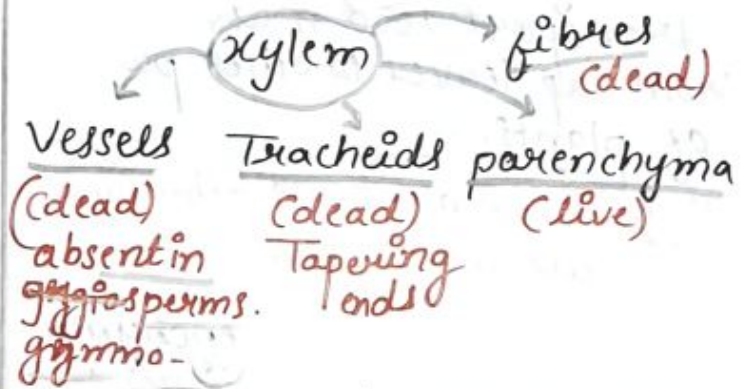 xylem
fibres
(dead)
Vessels
(dead)
absent in
sperms.
gymno-
Tracheids
(dead)
Tapering
ends
parenchyma
(live)